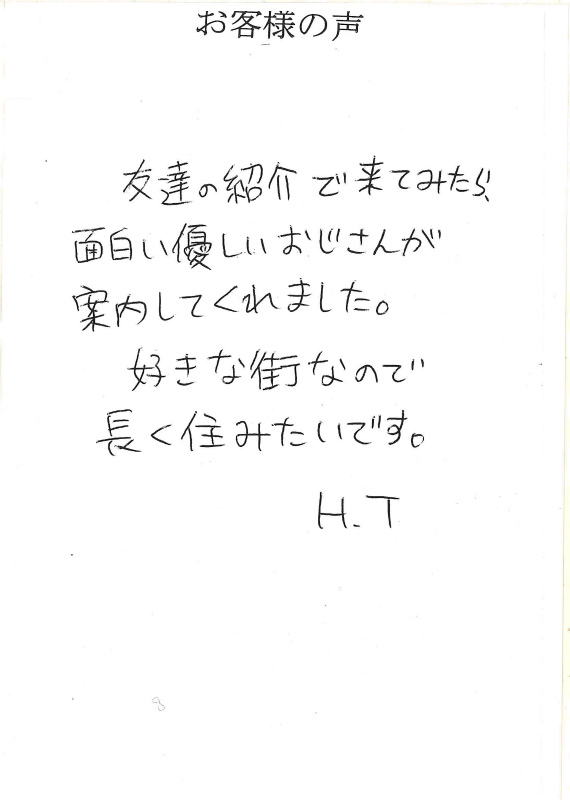 お客様の声
友達の紹介で来てみたら、
面白い優しいおじさんが
案内してくれました。
好きな街なので
長く住みたいです。
H.T
8